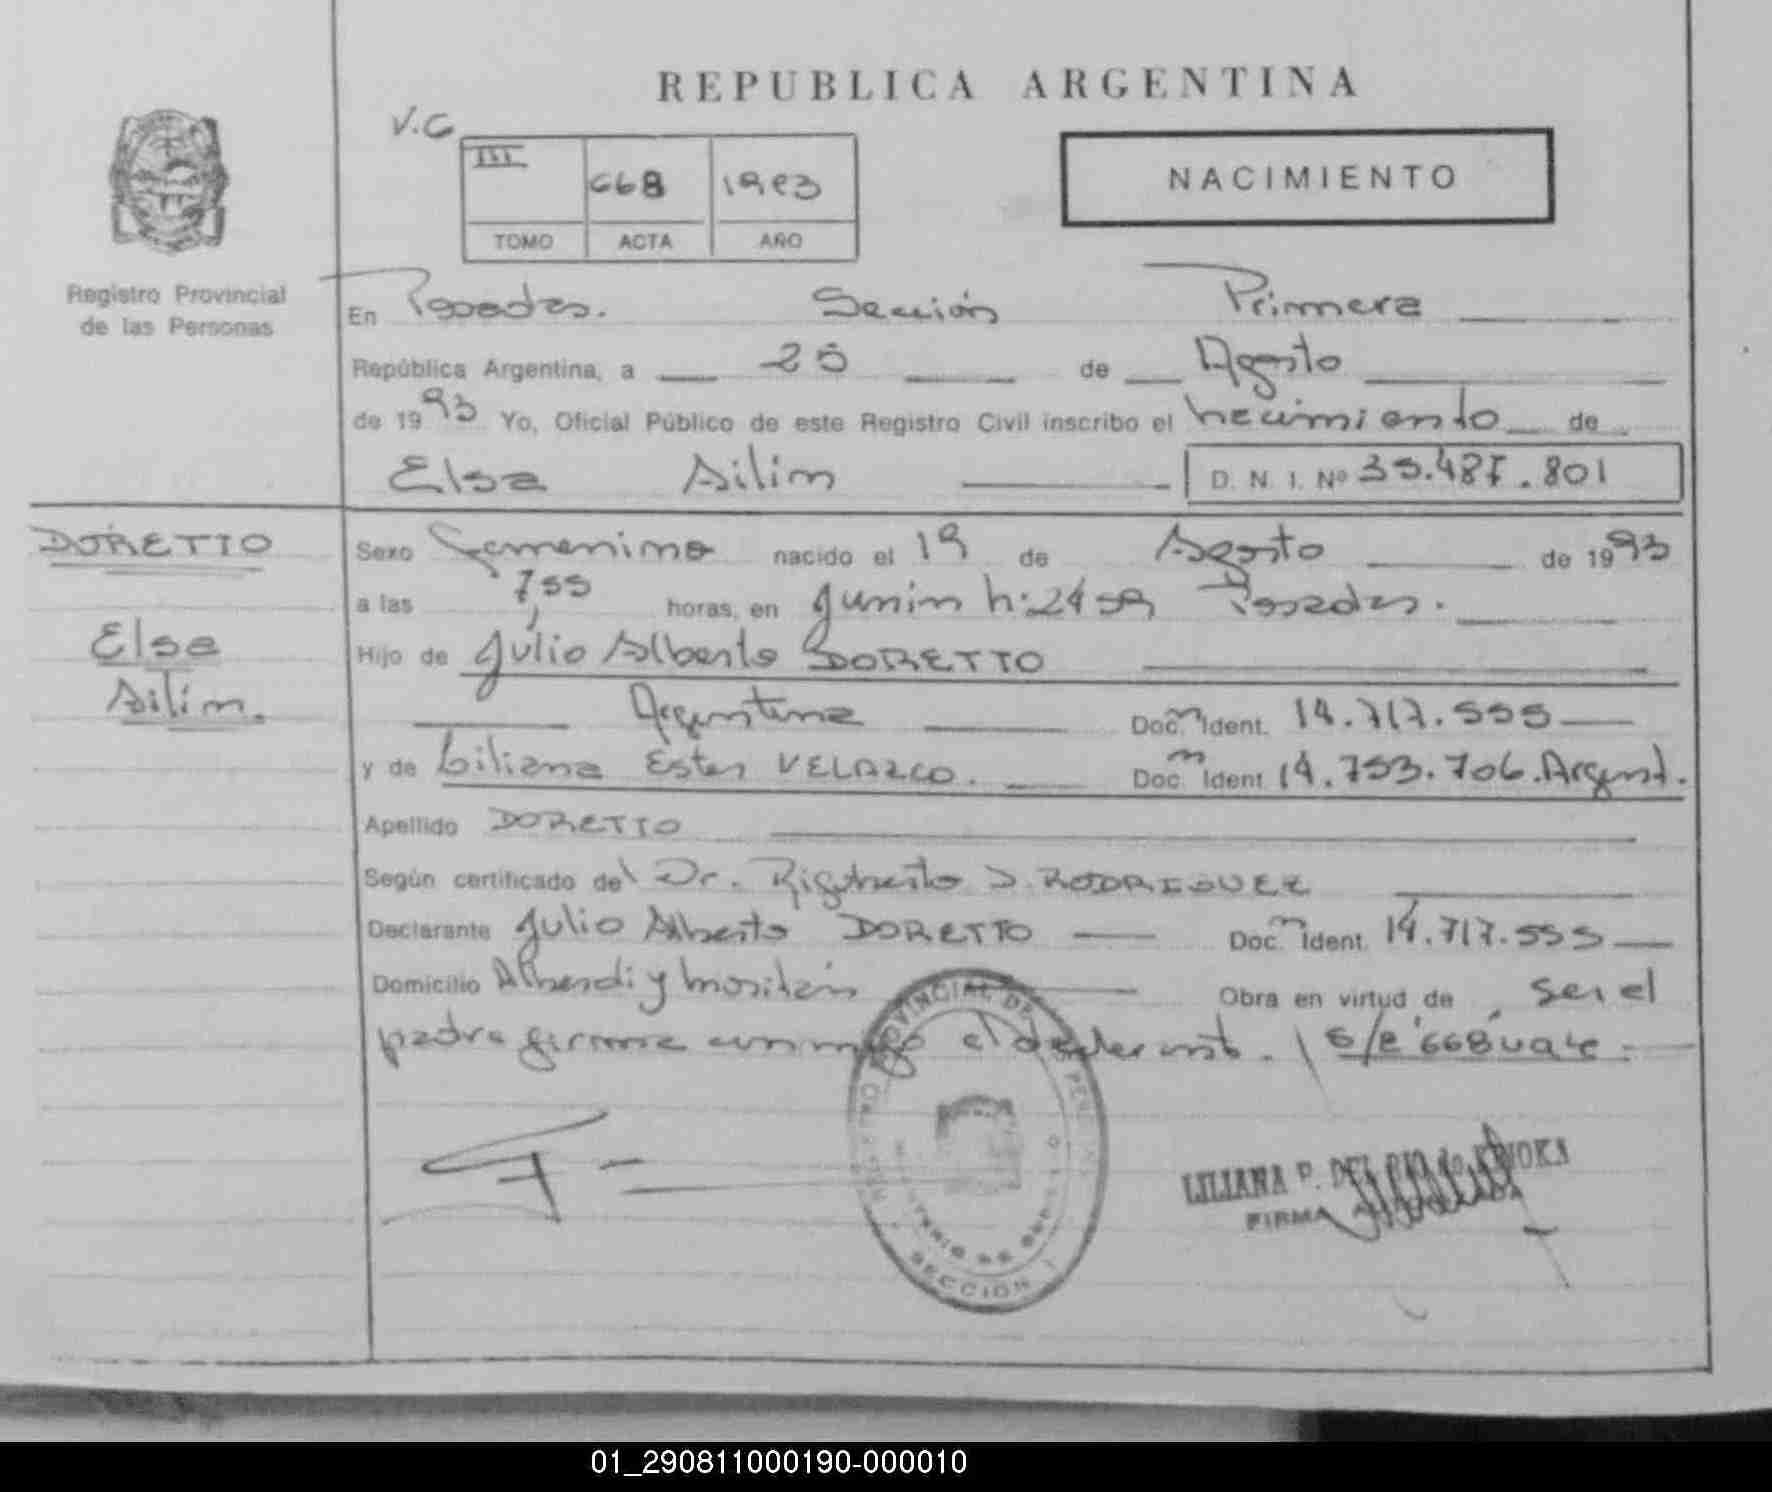 REPUBLICA ARGENTINA
V.G
III 668 1993
TOMO ACTA AÑO
NACIMIENTO
Registro Provincial
de las Personas
En Posadas. Sección Primera
República Argentina, a 25 de Agosto
de 1993 Yo, Oficial Público de este Registro Civil inscribo el nacimiento de
Elsa Ailin D. N. I. Nº 35.487.801
DORETTO
Elsa
Ailín.
Sexo Femenino nacido el 19 de Agosto de 1993
a las 7,55 horas, en Junin Posadas.
Hijo de Julio Alberto DORETTO
Argentina Doc. Ident. 14.717.555
y de Liliana Ester VELAZCO. Doc. Ident 14.753.706. Argent.
Apellido DORETTO
Según certificado del Dr. Rigoberto D. RODRIGUEZ
Declarante Julio Alberto DORETTO Doc. Ident. 14.717.555
Domicilio Alberdi y Obra en virtud de ser el
padre firma conmigo el declarante. S/R 668 vale.
PROVINCIAL DE
SECCION 1
LILIANA P. DEL
FIRMA
01_290811000190-000010